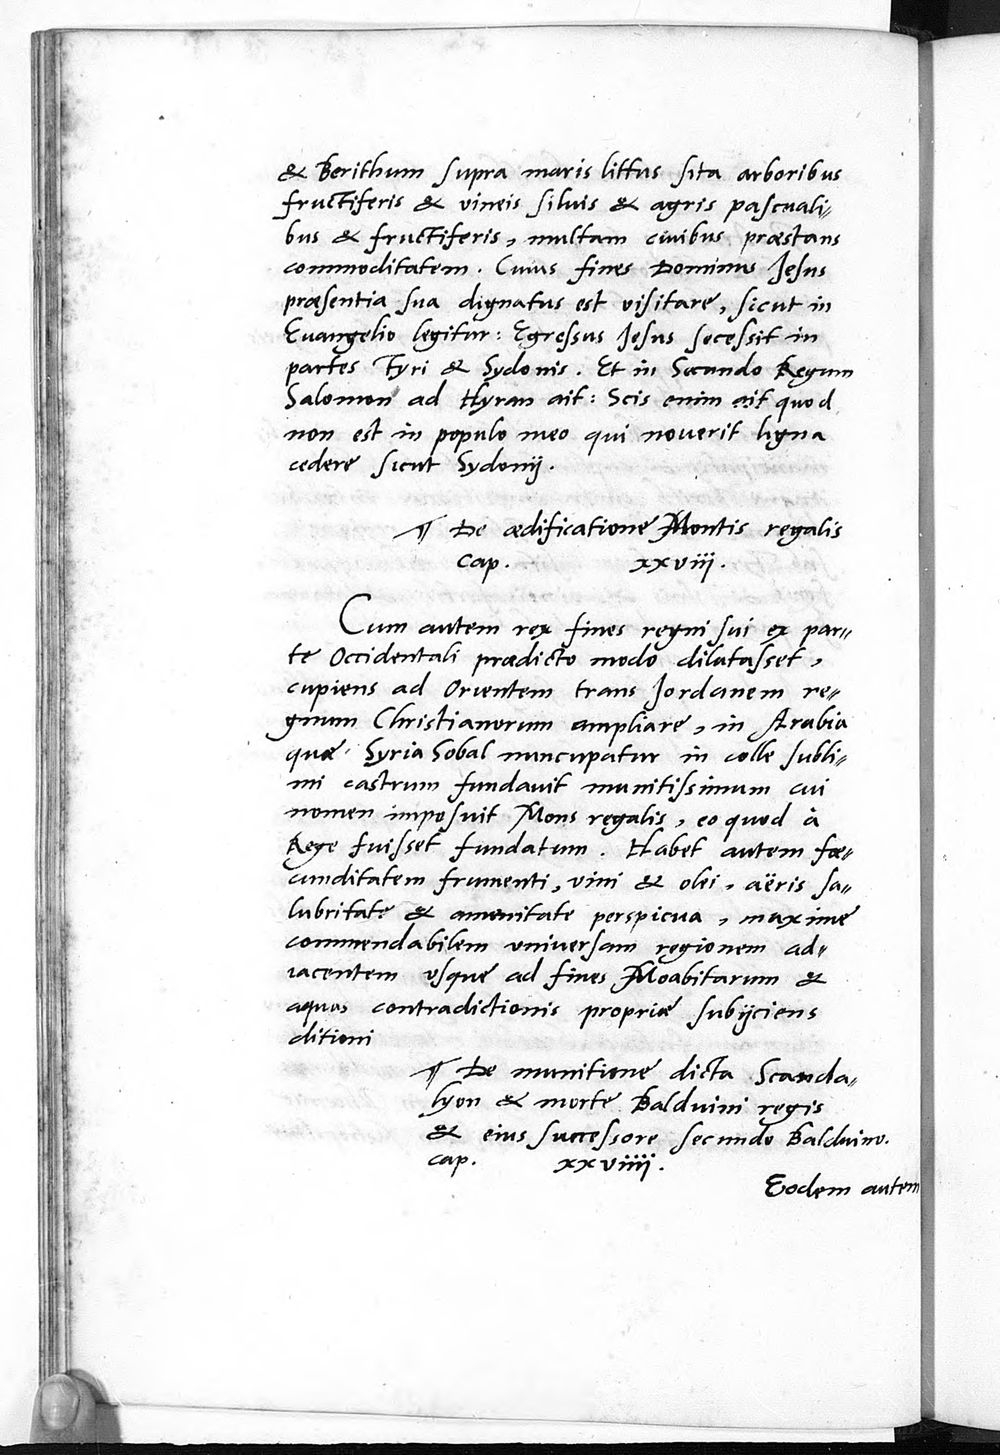 & Berithum supra maris littus sita arboribus
fructiferis & vineis siluis & agris pascuali-
bus & fructiferis, multam ciuibus præstans
commoditatem. Cuius fines Dominus Jesus
præsentia sua dignatus est visitare, sicut in
Euangelio legitur: Egressus Jesus secessit in
partes Tyri & Sydonis. Et in Secundo Regum
Salomon ad Hyram ait: Scis enim ait quod
non est in populo meo qui nouerit ligna
cedere sicut Sydonij.
¶ De ædificatione Montis regalis
cap. xxviij.
Cum autem rex fines regni sui ex par-
te Occidentali prædicto modo dilatasset,
cupiens ad Orientem trans Jordanem re-
gnum Christianorum ampliare, in Arabia
quæ Syria Sobal nuncupatur in colle subli-
mi castrum fundauit munitissimum cui
nomen imposuit Mons regalis, eo quod à
Rege fuisset fundatum. Habet autem fœ-
cunditatem frumenti, vini & olei, aëris sa-
lubritate & amenitate perspicua, maxime
commendabilem vniuersam regionem ad-
iacentem vsque ad fines Moabitarum &
aquas contradictionis propriæ subijciens
ditioni
¶ De munitione dicta Scanda-
lyon & morte Balduini regis
& eius successore secundo Balduino.
cap. xxviiij.
Eodem autem